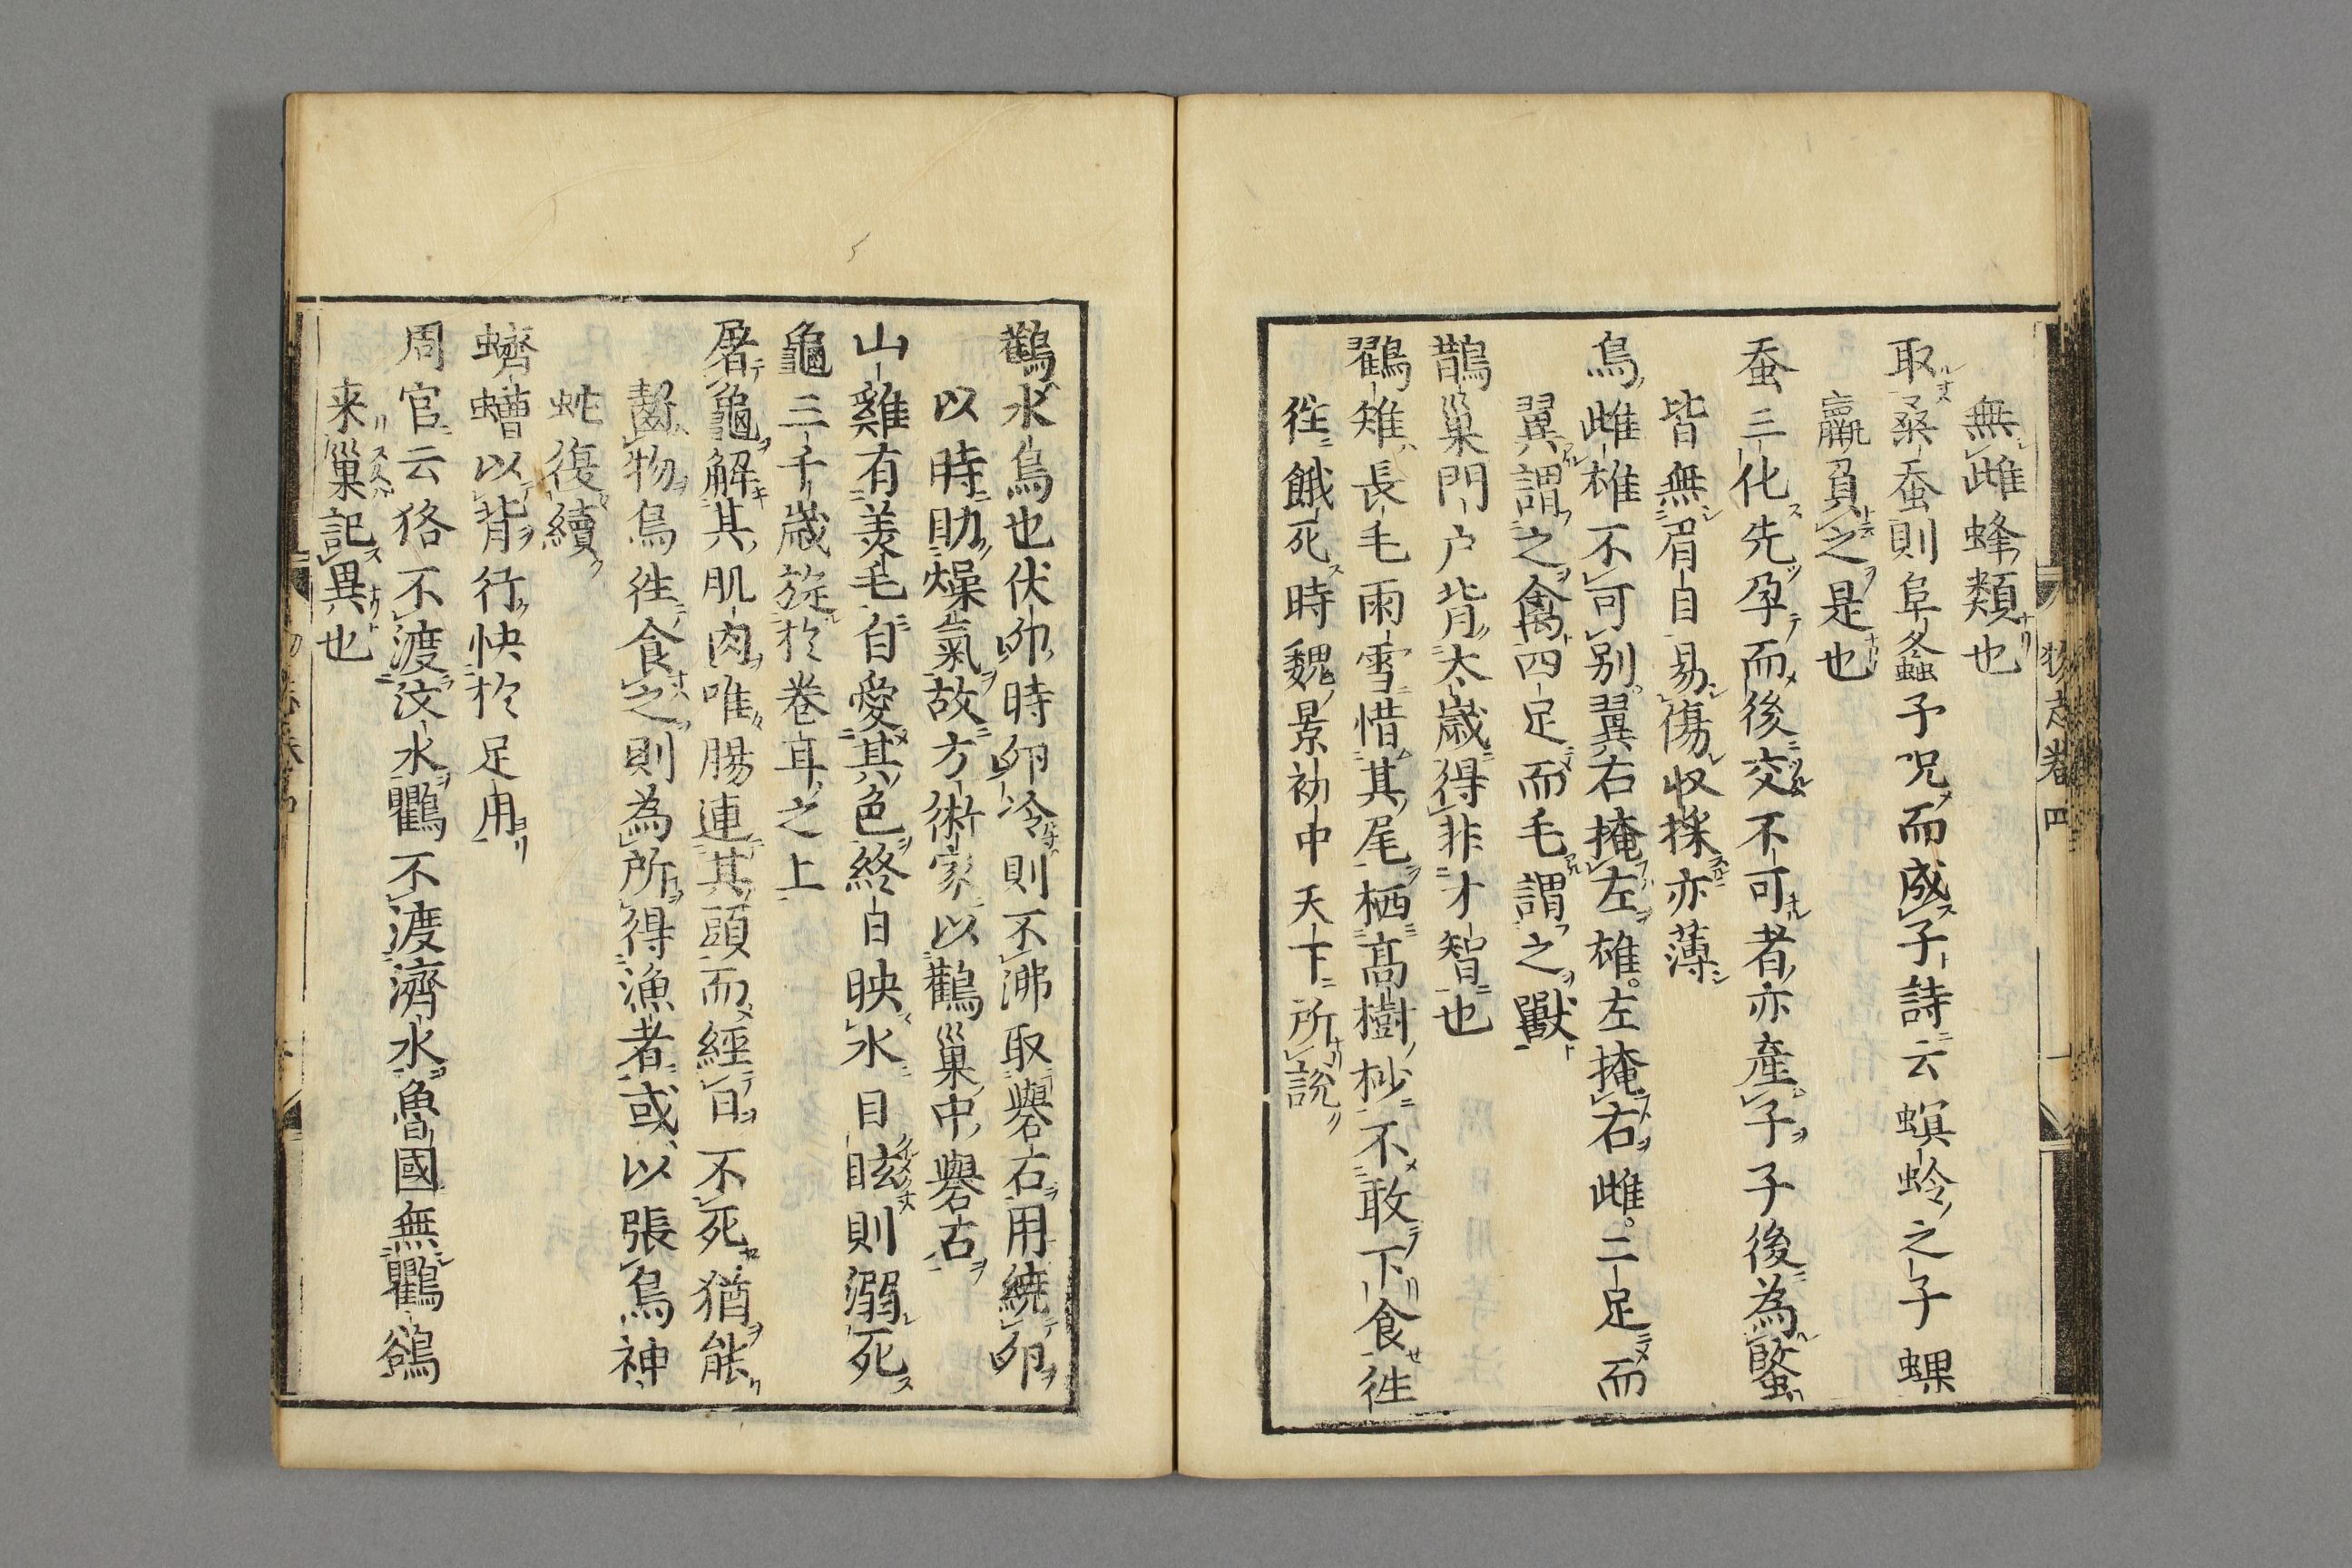 無雌蜂類也
取桑蚕則阜螽子呪而成子詩云螟蛉之子蜾
蠃負之是也
蚕三化先孕而後交不可者亦産子子後為䗋
皆無眉目易傷収採亦薄
鳥雌雄不可别翼右掩左雄。左掩右雌。二足而
翼謂之禽四足而毛謂之獸
鵲巢門户背太歳得非才智也
鸐雉長毛雨雪惜其尾栖髙樹杪不敢下食徃
徃餓死時魏景初中天下所説
鸛水鳥也伏卵時卵冷則不沸取礜石用繞卵
以時助燥氣故方術家以鸛巢中礜石
山雞有美毛自愛其色終日映水目眩則溺死
龜三千歳旋於巻耳之上
屠龜解其肌肉唯腸連其頭而經日不死猶能
齧物鳥徃食之則為所得漁者或以張鳥神
蛇復續
蠐螬以背行快於足用
周官云狢不渡汶水鸜不渡濟水魯國無鸜鵒
来巢記異也